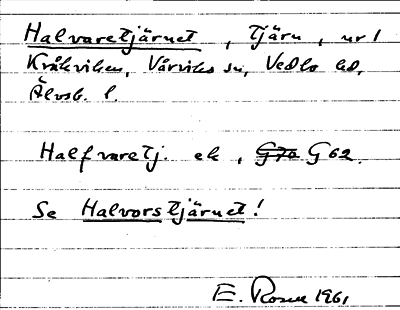 Halvaretjärnet, tjärn, nr 1
Kråkviken, Vårviks sn, Vedbo hd,
Älvsb. l.
Halfvaretj. ek, G70 G62.
Se Halvorstjärnet!
E. Rosell 1961